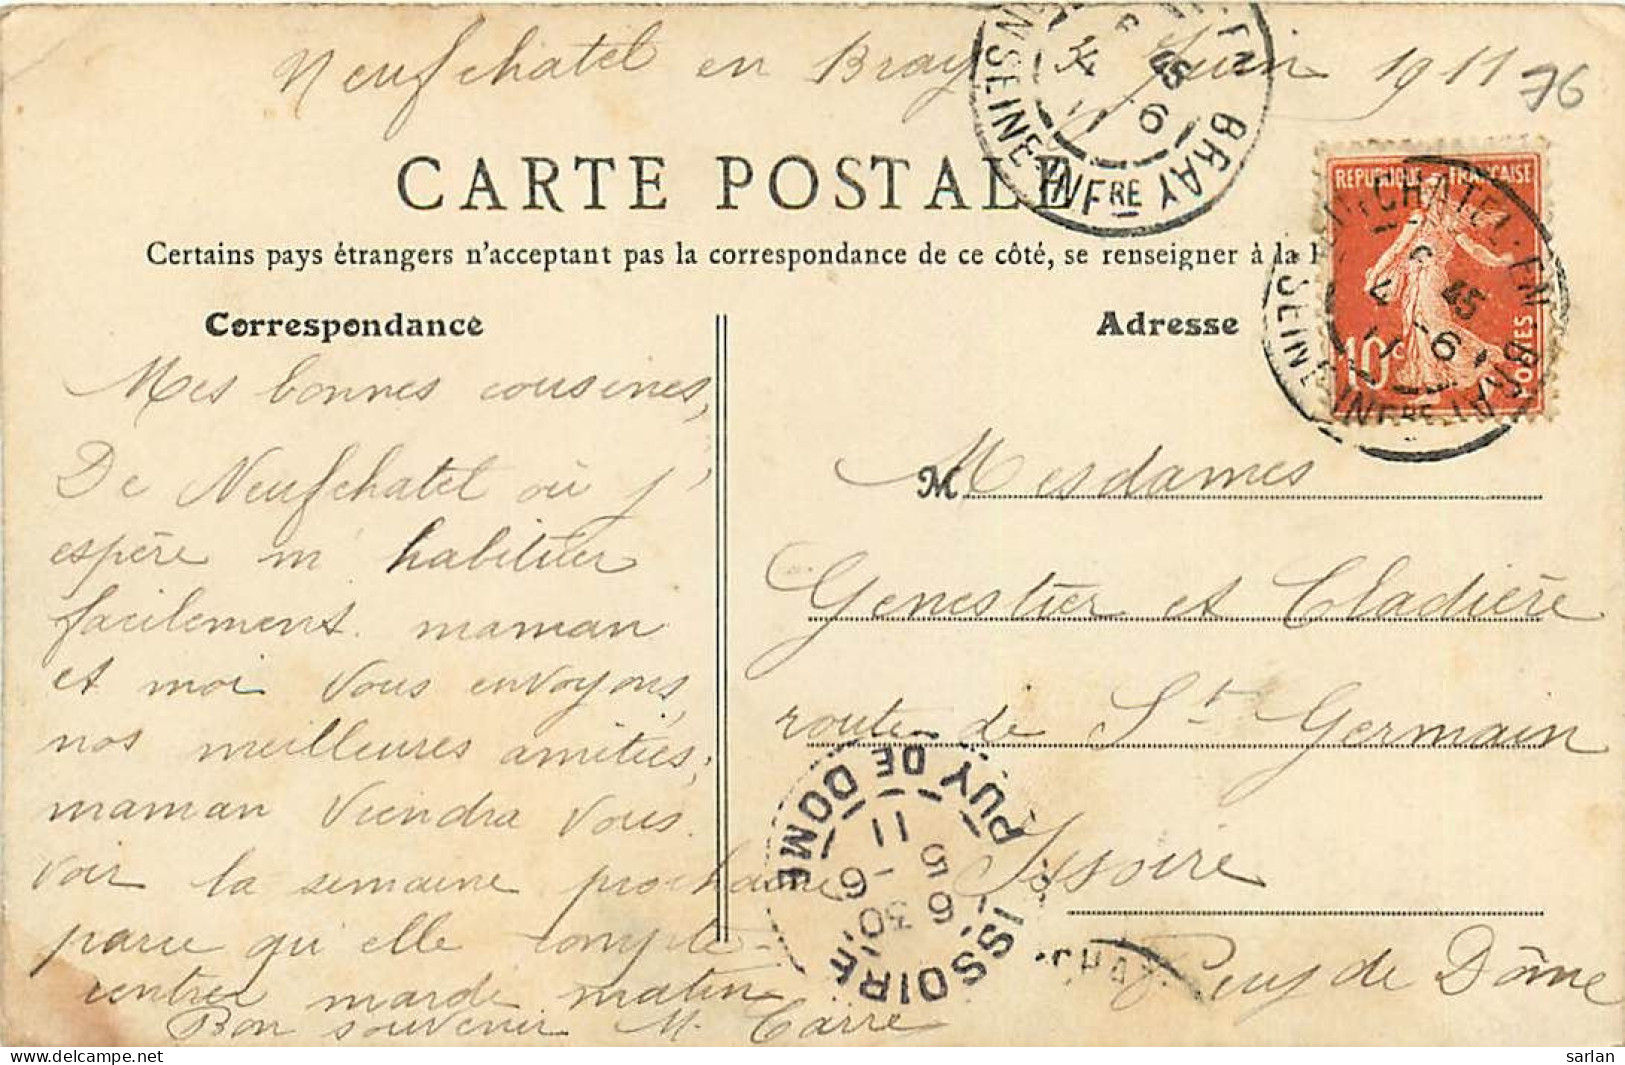 Neufchatel en Bray Juin 1911
76
CARTE POSTALE
Certains pays étrangers n'acceptant pas la correspondance de ce côté, se renseigner à la
Correspondance
Mes bonnes cousines,
De Neufchatel où j'
espère m'habituer
facilement. maman
et moi vous envoyons
nos meilleures amitiés,
maman viendra vous
voir la semaine prochaine
parce qu'elle compte
rentrer mardi matin
Bon souvenir M. Carré
Adresse
M Mesdames
Genestier et Cladière
route de St Germain
Issoire
Puy de Dôme
REPUBLIQUE FRANÇAISE
10c POSTES
CHATEL-EN-BRAY
6 45
4 -6
11
SEINE INFRE
EN BRAY
6 45
4 -6
11
SEINE INFRE
ISSOIRE
6 30
5 -6
11
PUY DE DOME
CHAT
sarlan